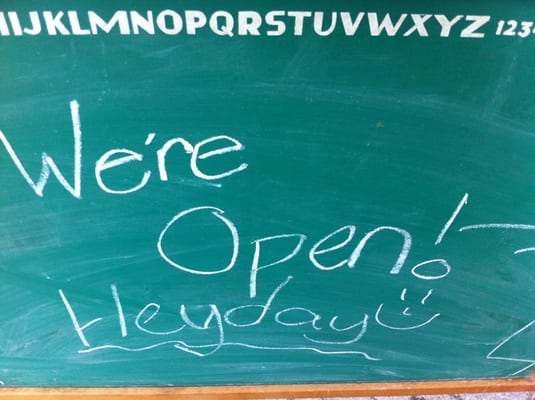 HIJKLMNOPQRSTUVWXYZ 123
We're
Open!
Heyday